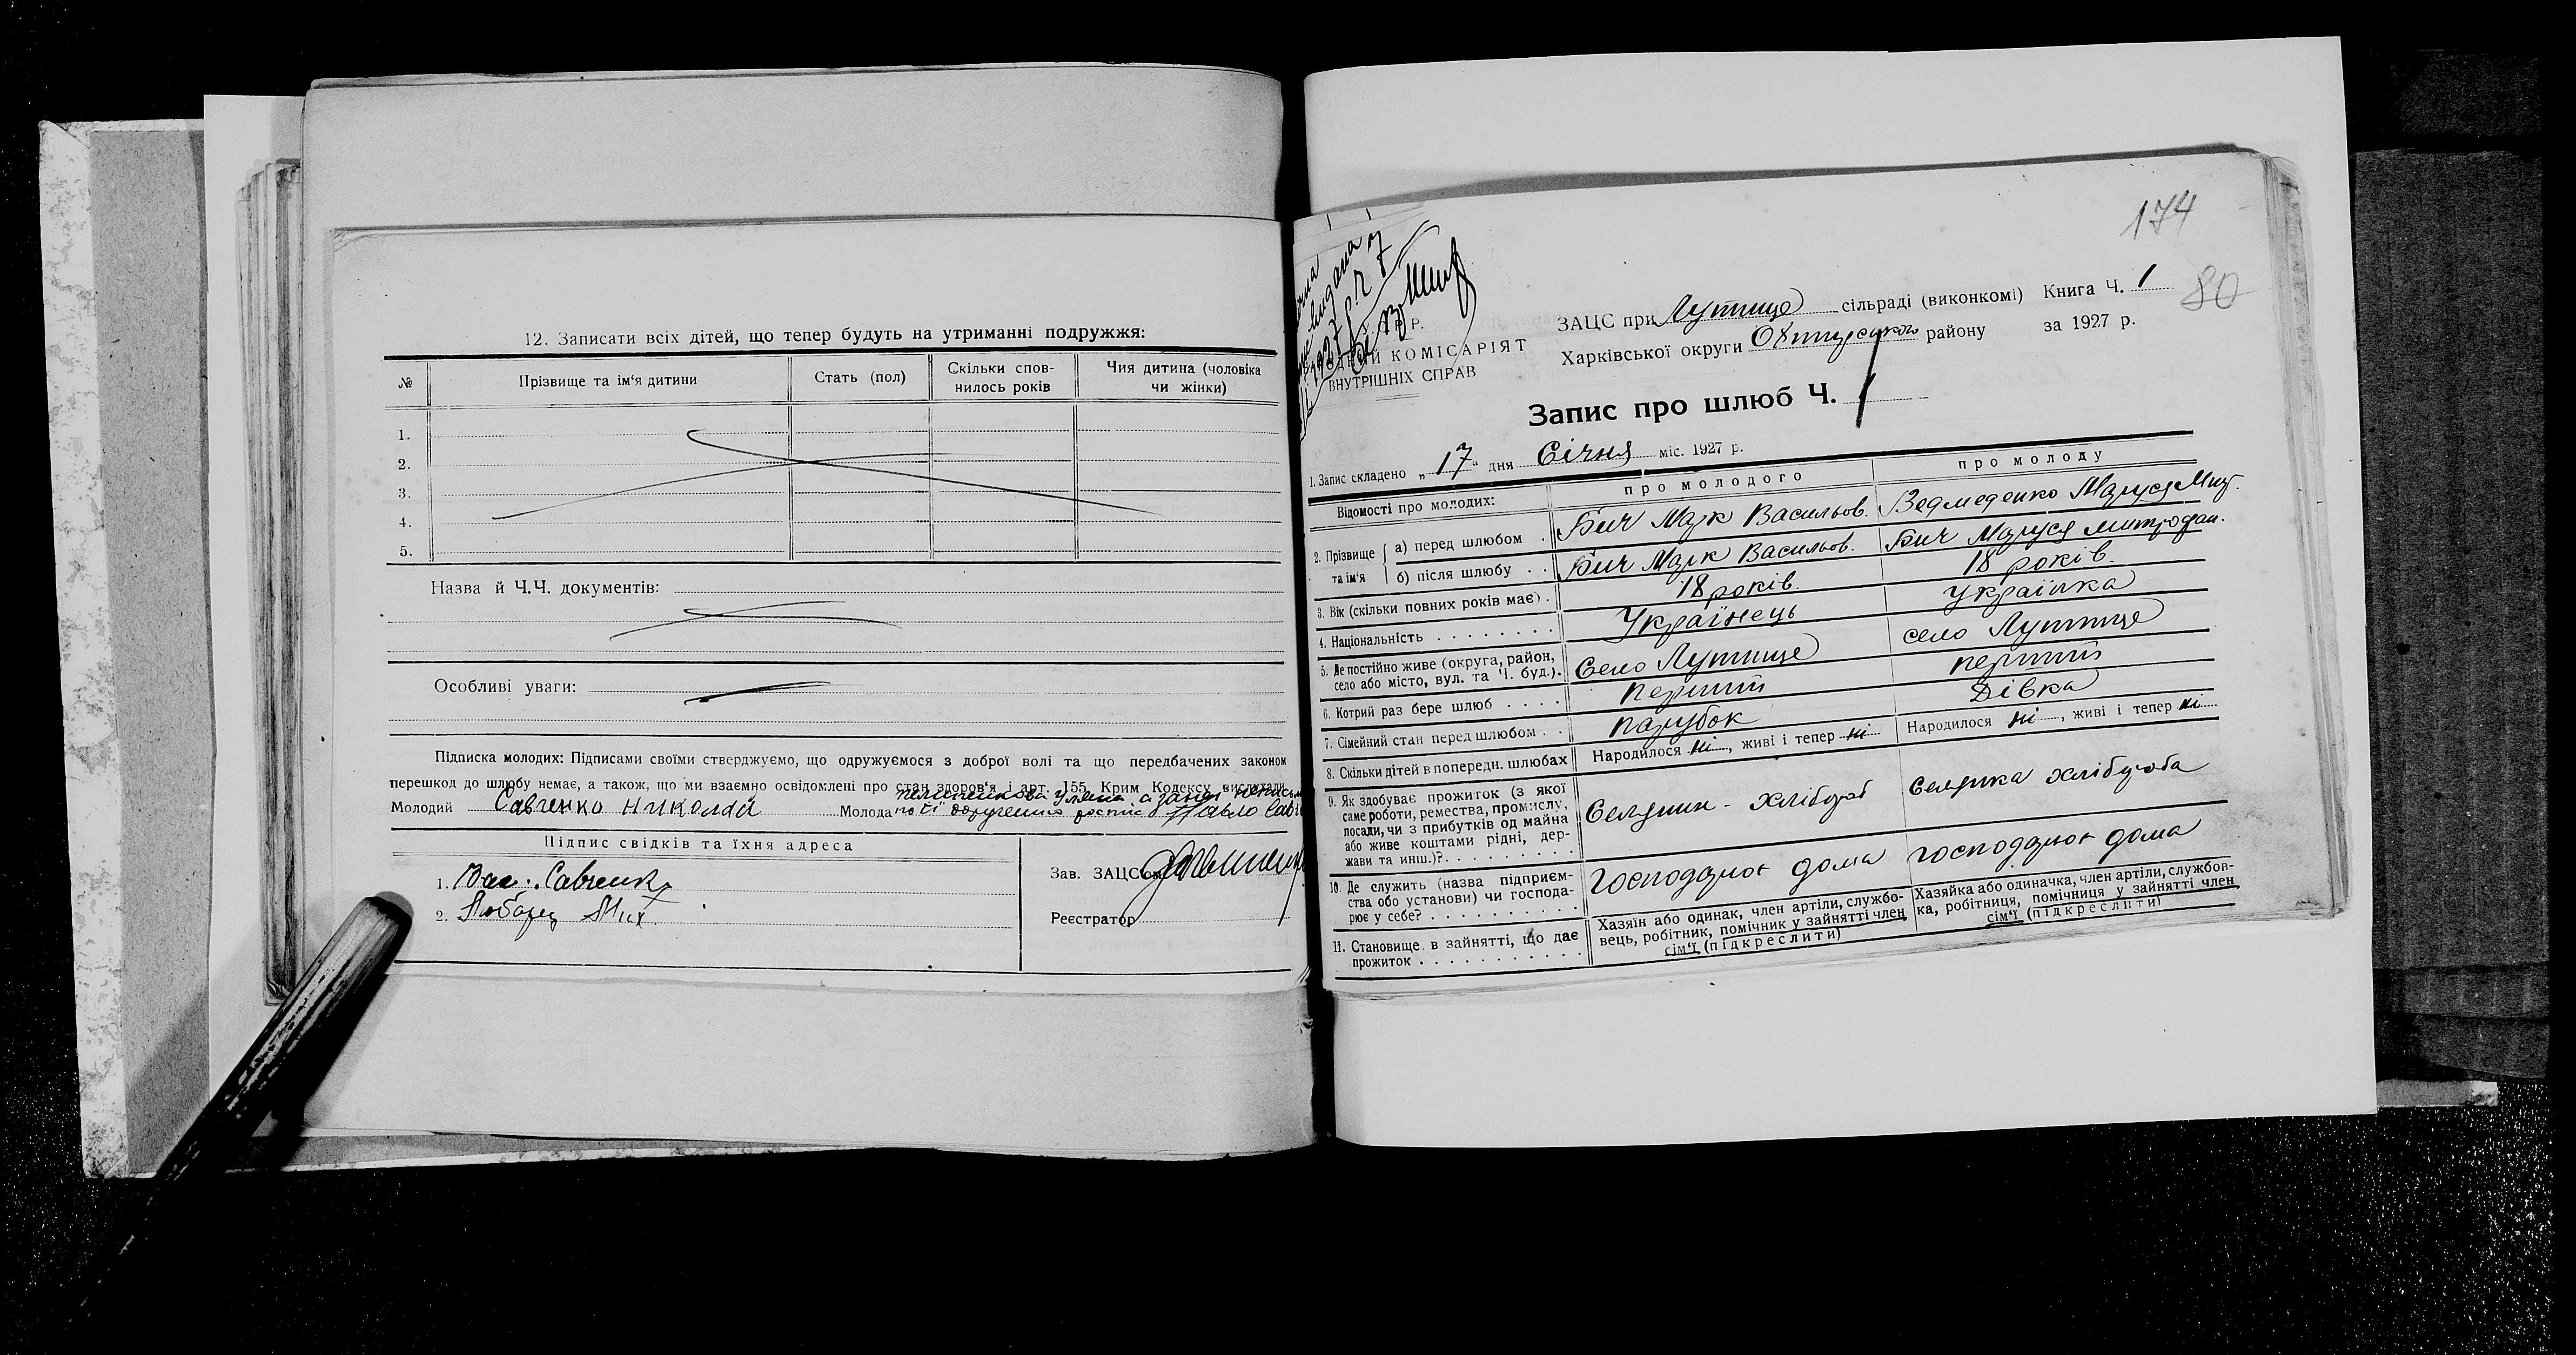 12. Записати всіх дітей, що тепер будуть на утриманні подружжя:
№ Прізвище та ім'я дитини Стать (пол) Скільки сповнилось років Чия дитина (чоловіка чи жінки)
1.
2.
3.
4.
5.
Назва й Ч.Ч. документів:
Особливі уваги:
Підписка молодих: Підписами своїми стверджуємо, що одружуємося з доброї волі та що передбачених законом
перешкод до шлюбу немає, а також, що ми взаємно освідомлені про стан здоров'я і арт. 155 Крим Кодексу вислухали
Молодий Савченко Николай Молода по її доручению Павло
Підпис свідків та їхня адреса
1. Вас. Савченко
2. Любарец Мих.
Зав. ЗАЦСом
Реєстратор
174
80
Р.
КОМІСАРІЯТ
ВНУТРІШНІХ СПРАВ
ЗАЦС при Лутище сільраді (виконкомі) Книга Ч. 1
Харківської округи Охтирського району за 1927 р.
Запис про шлюб Ч. 1
1. Запис складено „17" дня Січня міс. 1927 р.
Відомості про молодих: про молодого про молоду
2. Прізвище та ім'я
а) перед шлюбом . Бич Марк Васильов. Ведмеденко Маруся Мит.
б) після шлюбу . . Бич Марк Васильов. Бич Маруся митрофан.
3. Вік (скільки повних років має) . 18 років. 18 років.
4. Національність . . . . . . . . Українець Українка
5. Де постійно живе (округа, район, село або місто, вул. та Ч. буд.). Село Лутище село Лутище
6. Котрий раз бере шлюб . . . . перший перший
7. Сімейний стан перед шлюбом . . парубок Дівка
8. Скільки дітей в попередн. шлюбах Народилося ні, живі і тепер ні Народилося ні, живі і тепер ні
9. Як здобуває прожиток (з якої
саме роботи, ремества, промислу,
посади, чи з прибутків од майна
або живе коштами рідні, дер-
жави та инш.)? . . . . . . . . . Селянин - хлібороб Селянка хлібороба
10. Де служить (назва підприєм-
ства або установи) чи господа-
рює у себе? . . . . . . . . . . Господарює дома господарює дома
11. Становище в зайнятті, що дає
прожиток . . . . . . . . . . .
Хазяїн або одинак, член артіли, службо-
вець, робітник, помічник у зайнятті член
сім'ї (підкреслити)
Хазяйка або одиначка, член артіли, службов-
ка, робітниця, помічниця у зайнятті член
сім'ї (підкреслити)